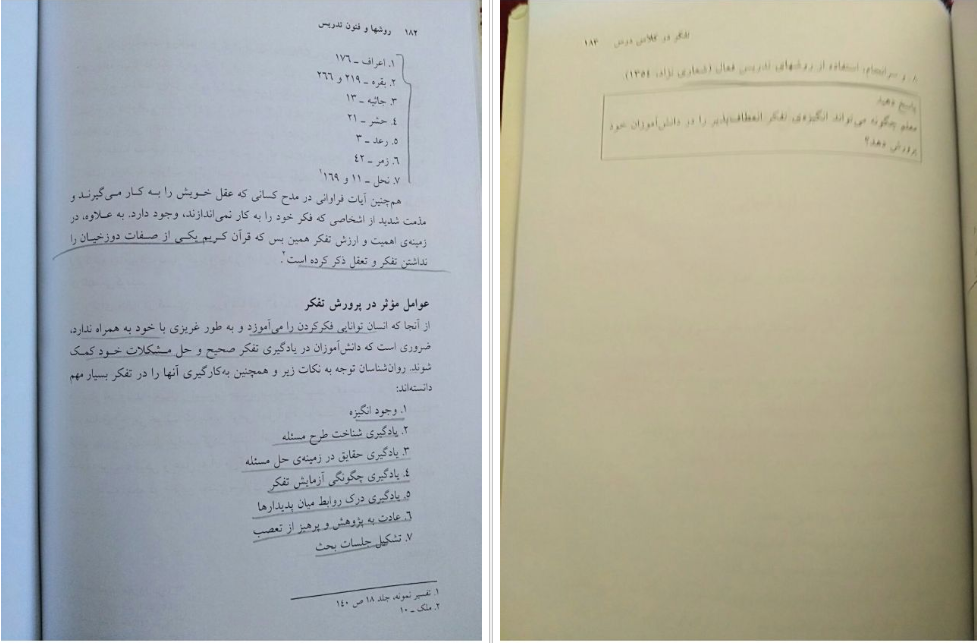 ۱۸۲ روشها و فنون تدریس
۱. اعراف ـ ۱۷۶
۲. بقره ـ ۲۱۹ و ۲۶۶
۳. جاثیه ـ ۱۳
۴. حشر ـ ۲۱
۵. رعد ـ ۳
۶. زمر ـ ۴۲
۷. نحل ـ ۱۱ و ۶۹ ۱
هم‌چنین آیات فراوانی در مدح کسانی که عقل خویش را به کار می‌گیرند و
مذمت شدید از اشخاصی که فکر خود را به کار نمی‌اندازند، وجود دارد. به علاوه، در
زمینه‌ی اهمیت و ارزش تفکر همین بس که قرآن کریم یکی از صفات دوزخیان را
نداشتن تفکر و تعقل ذکر کرده است.۲
عوامل مؤثر در پرورش تفکر
از آنجا که انسان توانایی فکرکردن را می‌آموزد و به طور غریزی با خود به همراه ندارد،
ضروری است که دانش‌آموزان در یادگیری تفکر صحیح و حل مشکلات خود کمک
شوند. روان‌شناسان توجه به نکات زیر و همچنین به‌کارگیری آنها را در تفکر بسیار مهم
دانسته‌اند:
۱. وجود انگیزه
۲. یادگیری شناخت طرح مسئله
۳. یادگیری حقایق در زمینه‌ی حل مسئله
۴. یادگیری چگونگی آزمایش تفکر
۵. یادگیری درک روابط میان پدیدارها
۶. عادت به پژوهش و پرهیز از تعصب
۷. تشکیل جلسات بحث
۱. تفسیر نمونه، جلد ۱۸ ص ۱۴۰
۲. ملک ـ ۱۰
تفکر در کلاس درس ۱۸۳
۸. و سرانجام، استفاده از روشهای تدریس فعال (شعاری نژاد، ۱۳۵۴)
پاسخ دهید
معلم چگونه می‌تواند انگیزه‌ی تفکر انعطاف‌پذیر را در دانش‌آموزان خود
پرورش دهد؟